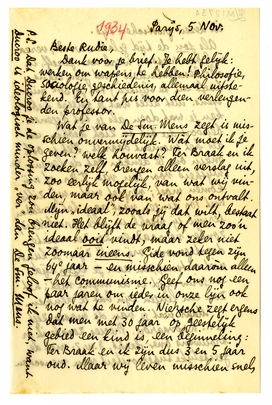 1934
Parijs, 5 Nov.
Beste Rudie,
Dank voor je brief. Je hebt gelijk:
werken om wapens te hebben! Philosofie,
sociologie, geschiedenis allemaal uitste-
kend. En tant pis voor dien
den professor.
Wat je van De Sm. Mens zegt is mis-
schien onvermijdelijk. Wat moet ik je
geven? welk houvast? Ter Braak en ik
zoeken zelf, brengen alleen verslag uit,
zoo eerlijk mogelijk, van wat wij vin-
den, maar ook van wat ons ontvalt.
Mijn "ideaal", zooals jij dat wilt, bestaat
niet. Het blijft de vraag of men zoo'n
ideaal ooit vindt, maar zeker niet
zoomaar ineens. Gide vond tegen zijn
64e jaar — en misschien daarom alleen
— het communisme. Geef ons nog een
paar jaren om ieder in onze lijn ook
nog wat te vinden. Nietzsche zegt ergens
dat men met 30 jaar op geestelijk
gebied een kind is, een beginneling:
Ter Braak en ik zijn dus 3 en 5 jaar
oud. Maar wij leven misschien snel,
P.S. Dat Ducroo je de oplossing zou brengen, geloof ik niet, want
Ducroo is ideologisch minder "ver" dan De Sm. Mens.